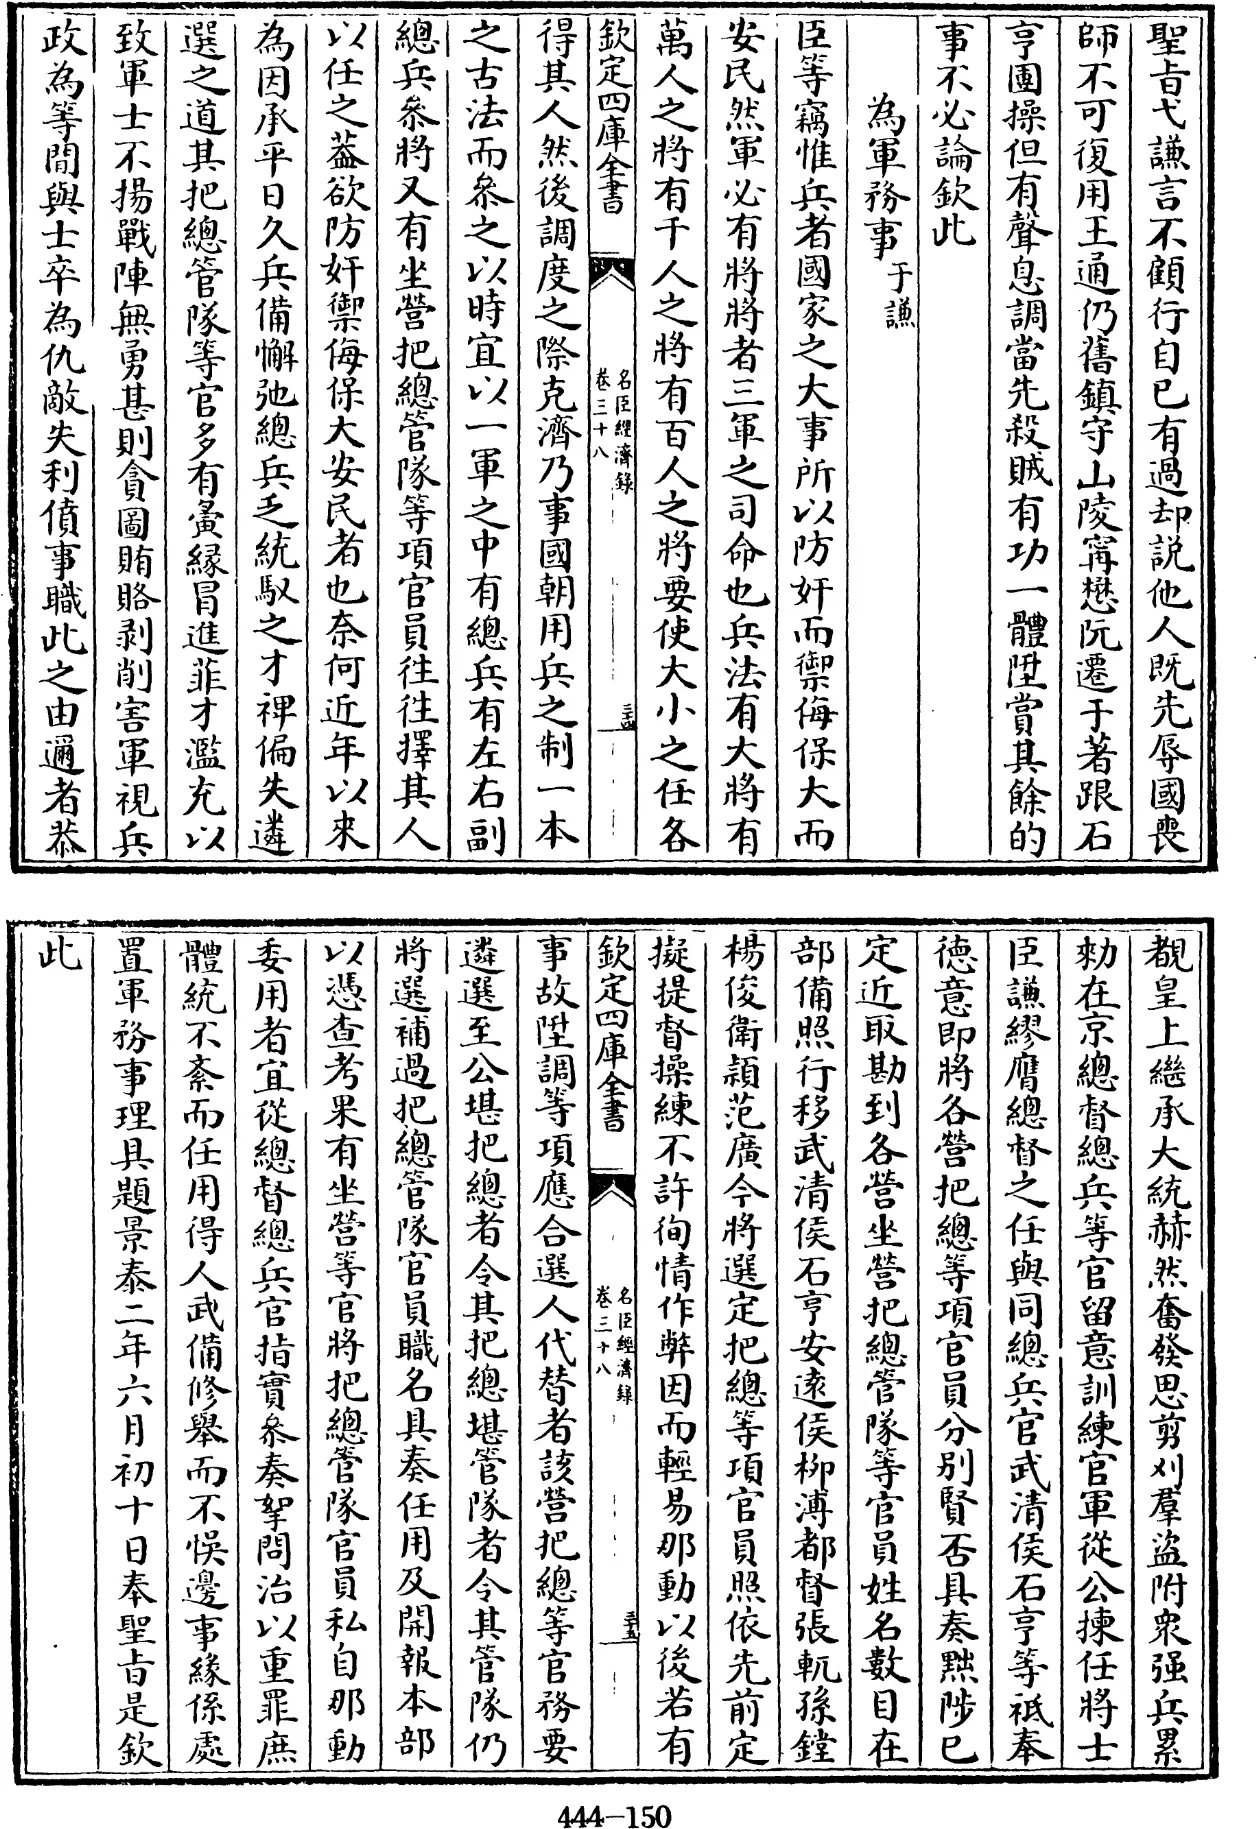 聖旨弋謙言不顧行自已有過却説他人既先辱國喪
師不可復用王通仍舊鎮守山陵寗懋阮遷于著跟石
亨團操但有聲息調當先殺賊有功一體陞賞其餘的
事不必論欽此
為軍務事于謙
臣等竊惟兵者國家之大事所以防奸而禦侮保大而
安民然軍必有將將者三軍之司命也兵法有大將有
萬人之將有千人之將有百人之將要使大小之任各
欽定四庫全書
名臣經濟錄
卷三十八
三四
得其人然後調度之際克濟乃事國朝用兵之制一本
之古法而叅之以時宜以一軍之中有總兵有左右副
總兵叅將又有坐營把總管隊等項官員往往擇其人
以任之葢欲防奸禦侮保大安民者也奈何近年以來
為因承平日久兵備懈弛總兵乏統馭之才裨偏失遴
選之道其把總管隊等官多有夤縁冒進菲才濫充以
致軍士不揚戰陣無勇甚則貪圖賄賂剥削害軍視兵
政為等閒與士卒為仇敵失利僨事職此之由邇者恭
覩皇上繼承大統赫然奮發思剪刈羣盜附衆强兵累
勅在京總督總兵等官留意訓練官軍從公揀任將士
臣謙繆膺總督之任與同總兵官武清侯石亨等祗奉
德意即將各營把總等項官員分别賢否具奏黜陟已
定近取勘到各營坐營把總管隊等官員姓名數目在
部備照行移武清侯石亨安遠侯柳溥都督張軏孫鏜
楊俊衛頴范廣今將選定把總等項官員照依先前定
擬提督操練不許徇情作弊因而輕易那動以後若有
欽定四庫全書
名臣經濟錄
卷三十八
三五
事故陞調等項應合選人代替者該營把總等官務要
遴選至公堪把總者令其把總堪管隊者令其管隊仍
將選補過把總管隊官員職名具奏任用及開報本部
以憑查考果有坐營等官將把總管隊官員私自那動
委用者宜從總督總兵官指實叅奏拏問治以重罪庶
體統不紊而任用得人武備修舉而不悞邊事緣係處
置軍務事理具題景泰二年六月初十日奉聖旨是欽
此
444-150